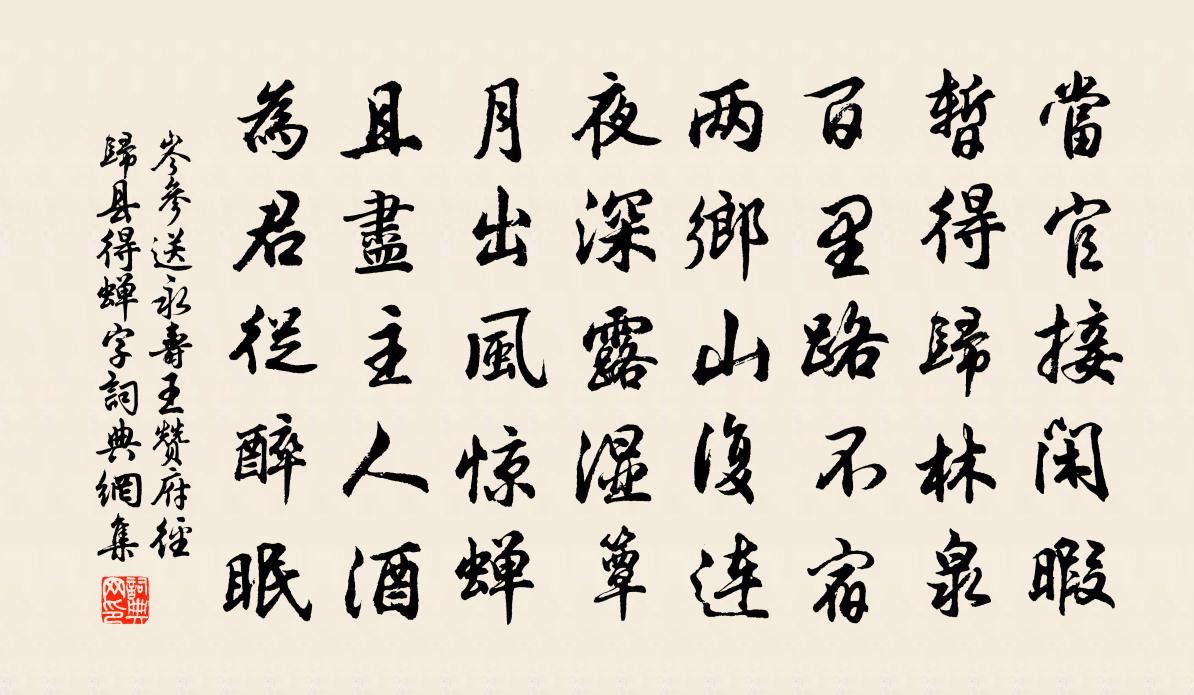 當官接閑暇
暫得歸林泉
百里路不宿
两鄉山復连
夜深露濕簟
月出風惊蝉
且盡主人酒
為君從醉眠
岑參送永壽王赞府徑
歸县得蝉字詞典網集
詞典網印